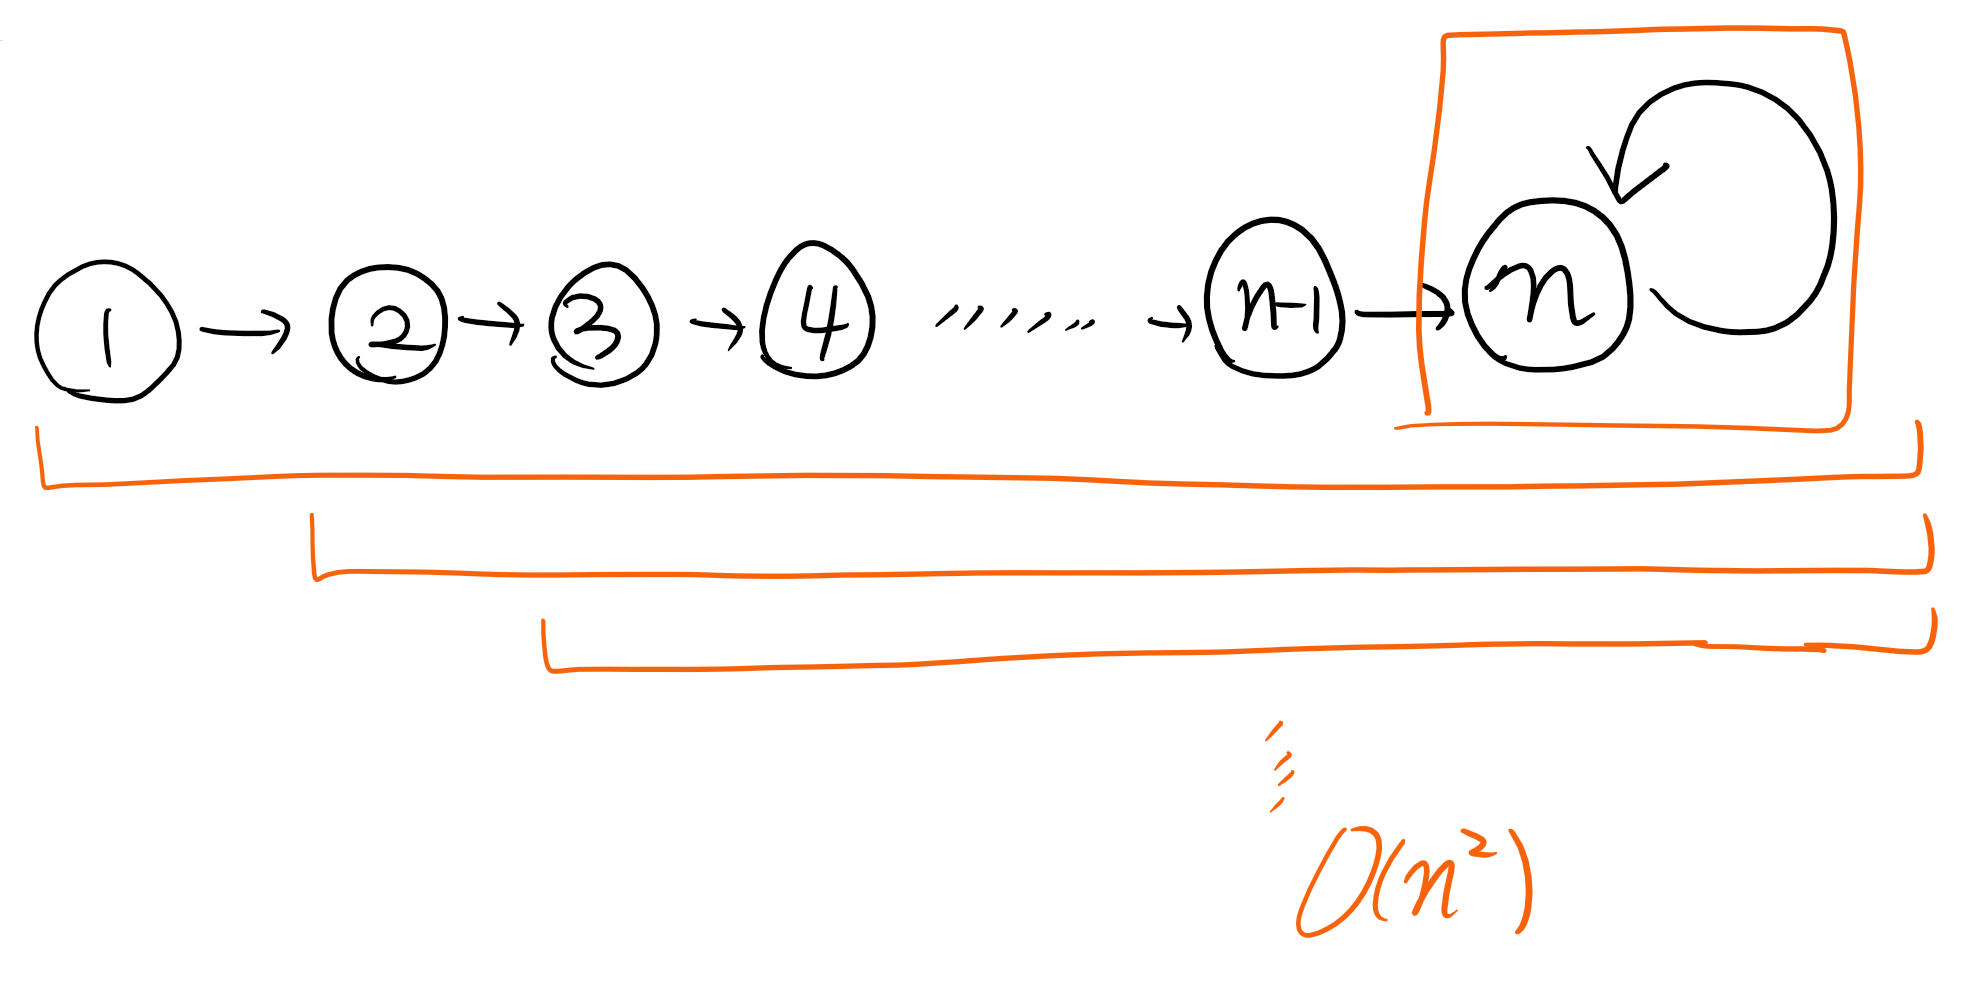 1 2 3 4 n-1 n
O(n²)